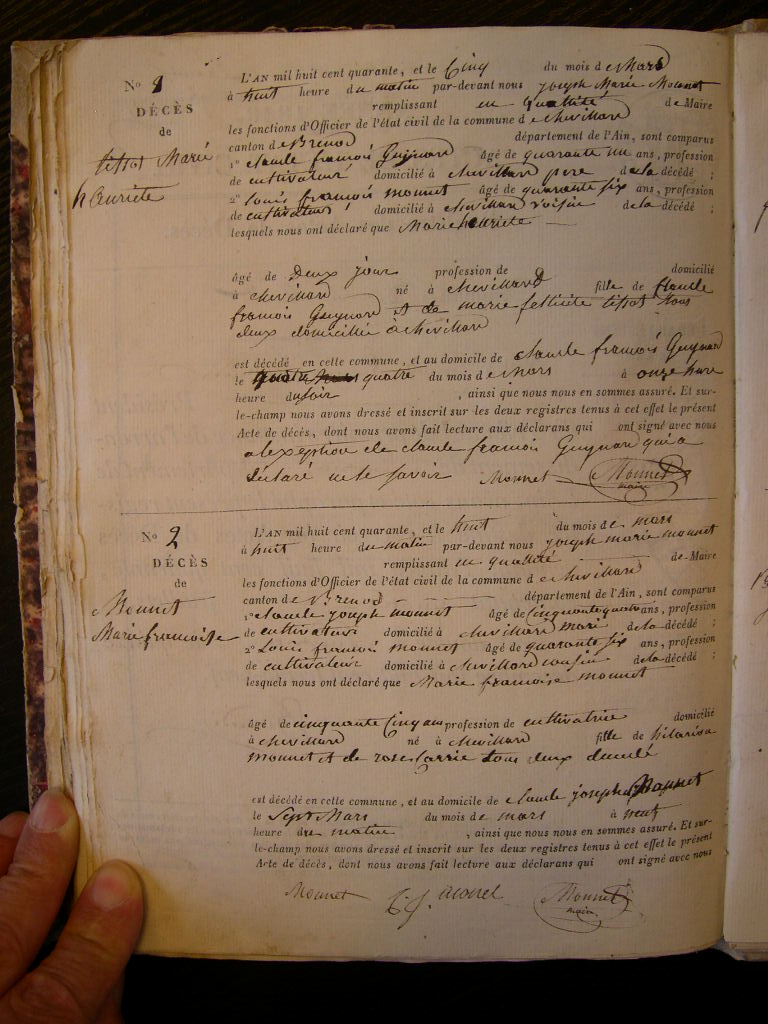 No 1
DÉCÈS
de
tissot Marie
henriete
L'AN mil huit cent quarante, et le Cinq du mois de Mars
à huit heure du matin par-devant nous joseph Marie Monnet
remplissant en quallité de Maire
les fonctions d'Officier de l'état civil de la commune de chevillard
canton de Brenod département de l'Ain, sont comparus
1o claude francois Guynard âgé de quarante un ans, profession
de cultivateur domicilié à chevillard pere de la décédé ;
2o Louis francois monnet âgé de quarante six ans, profession
de cultivateur domicilié à chevillard voisin de la décédé ;
lesquels nous ont déclaré que Marie henriete
âgé de Deux jour profession de domicilié
à chevillard né à chevillard fille de Claude
francois Guynard et de marie fellicite tissot tous
deux domicillié à chevillard
est décédé en cette commune, et au domicile de claude francois Guynard
le quatre du mois de mars à onze hure
heure du soir , ainsi que nous nous en sommes assuré. Et sur-
le-champ nous avons dressé et inscrit sur les deux registres tenus à cet effet le présent
Acte de décès, dont nous avons fait lecture aux déclarans qui ont signé avec nous
a lexseption de claude francois Guynard qui a
déclaré ne le savoir Monnet Monnet
maire
No 2
DÉCÈS
de
Monnet
Marie francoise
L'AN mil huit cent quarante, et le huit du mois de mars
à huit heure du matin par-devant nous joseph marie monnet
remplissant en quallité de Maire
les fonctions d'Officier de l'état civil de la commune de chevillard
canton de Brenod département de l'Ain, sont comparus
1o claude joseph monnet âgé de Cinquante quatre ans, profession
de cultivateur domicilié à chevillard mari de la décédé ;
2o Louis francois monnet âgé de quarante six ans, profession
de cultivateur domicilié à chevillard cousin de la décédé ;
lesquels nous ont déclaré que Marie francoise monnet
âgé de cinquante Cinq ans profession de cultivatrice domicilié
à chevillard né à chevillard fille de hilarion
monnet et de rose Carrie tous deux décédé
est décédé en cette commune, et au domicile de claude joseph Monnet
le Sept Mars du mois de mars à neuf
heure du matin , ainsi que nous nous en sommes assuré. Et sur-
le-champ nous avons dressé et inscrit sur les deux registres tenus à cet effet le présent
Acte de décès, dont nous avons fait lecture aux déclarans qui ont signé avec nous
Monnet C. J. monet Monnet
maire